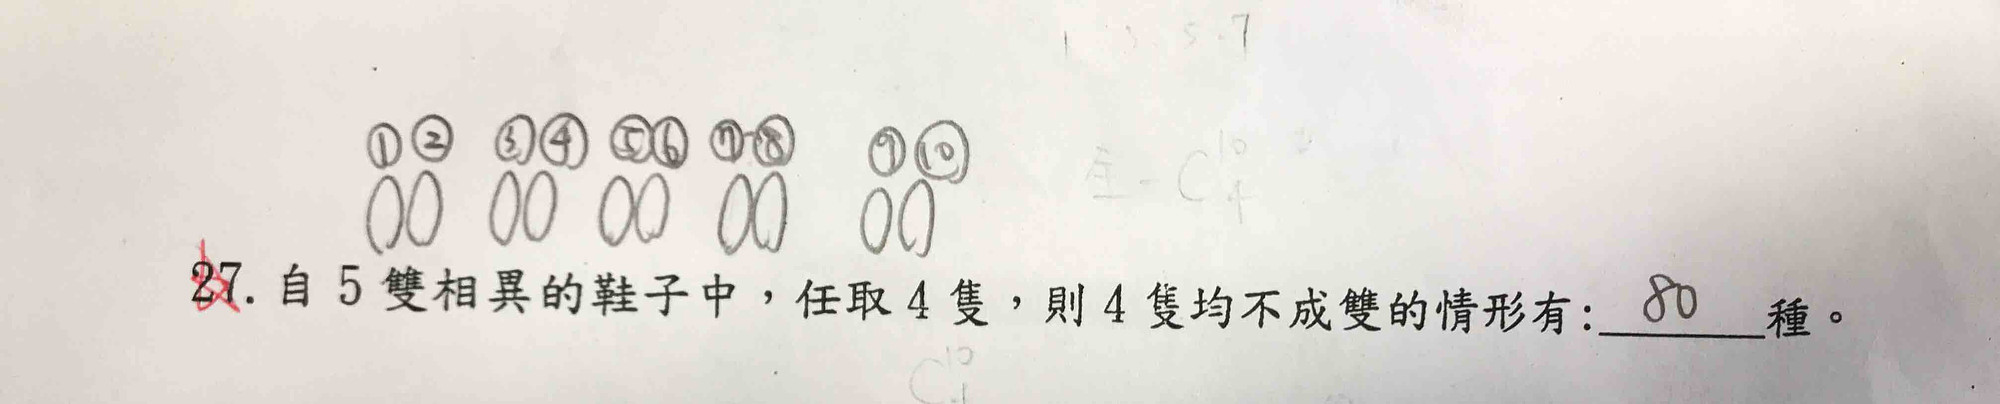 1 3 5.7
① ② ③ ④ ⑤ ⑥ ⑦ ⑧ ⑨ ⑩
- C 10 4
27. 自 5 雙相異的鞋子中，任取 4 隻，則 4 隻均不成雙的情形有: 80 種。
C 10